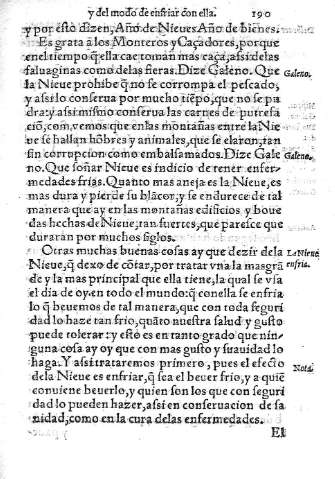 y del modo de enfriar con ella. 190
y por esto dizen, Año de Nieues Año de bienes.
Es grata à los Monteros y Caçadores, porque
enel tiempo q̃ ella cae toman mas caça, assi delas
faluaginas como delas fieras. Dize Galeno. Que
Galeno.
la Nieue prohibe q̃ no se corrompa el pescado,
y assi lo conserua por mucho tiẽpo, que no se pu
dra: y assi mismo conserua las carnes de putrefa
ciõ, com, vemos que en las montañas entre la Nie
ue se hallan hõbres y animales, que se elaron, tan
sin corrupcion como embalsamados. Dize Gale
Galeno.
no. Que soñar Nieue es indicio de tener enfer-
medades frias. Quanto mas aneja es la Nieue, es
mas dura y pierde su blãcor, y se endurece de tal
manera que ay en las montañas edificios y boue
das hechas de Nieue, tan fuertes, que paresce que
duraran por muchos siglos.
Otras muchas buenas cosas ay que dezir dela
La Nieue
Nieue, q̃ dexo de cõtar, por tratar vna la mas grã
enfria.
de y la mas principal que ella tiene, la qual se vsa
el dia de oy en todo el mundo: q̃ conella se enfria
lo q̃ beuemos de tal manera, que con toda seguri
dad lo haze tan frio, quãto nuestra salud y gusto
puede tolerar: y esto es en tanto grado que nin-
guna cosa ay oy que con mas gusto y suauidad lo
haga. Y assi trataremos primero, pues el efecto
Nota
dela Nieue es enfriar, q̃ sea el beuer frio, y a quiẽ
conuiene beuerlo, y quien son los que con segu
ridad lo pueden hazer, assi en conseruacion de sa
nidad, como en la cura delas enfermedades.
El